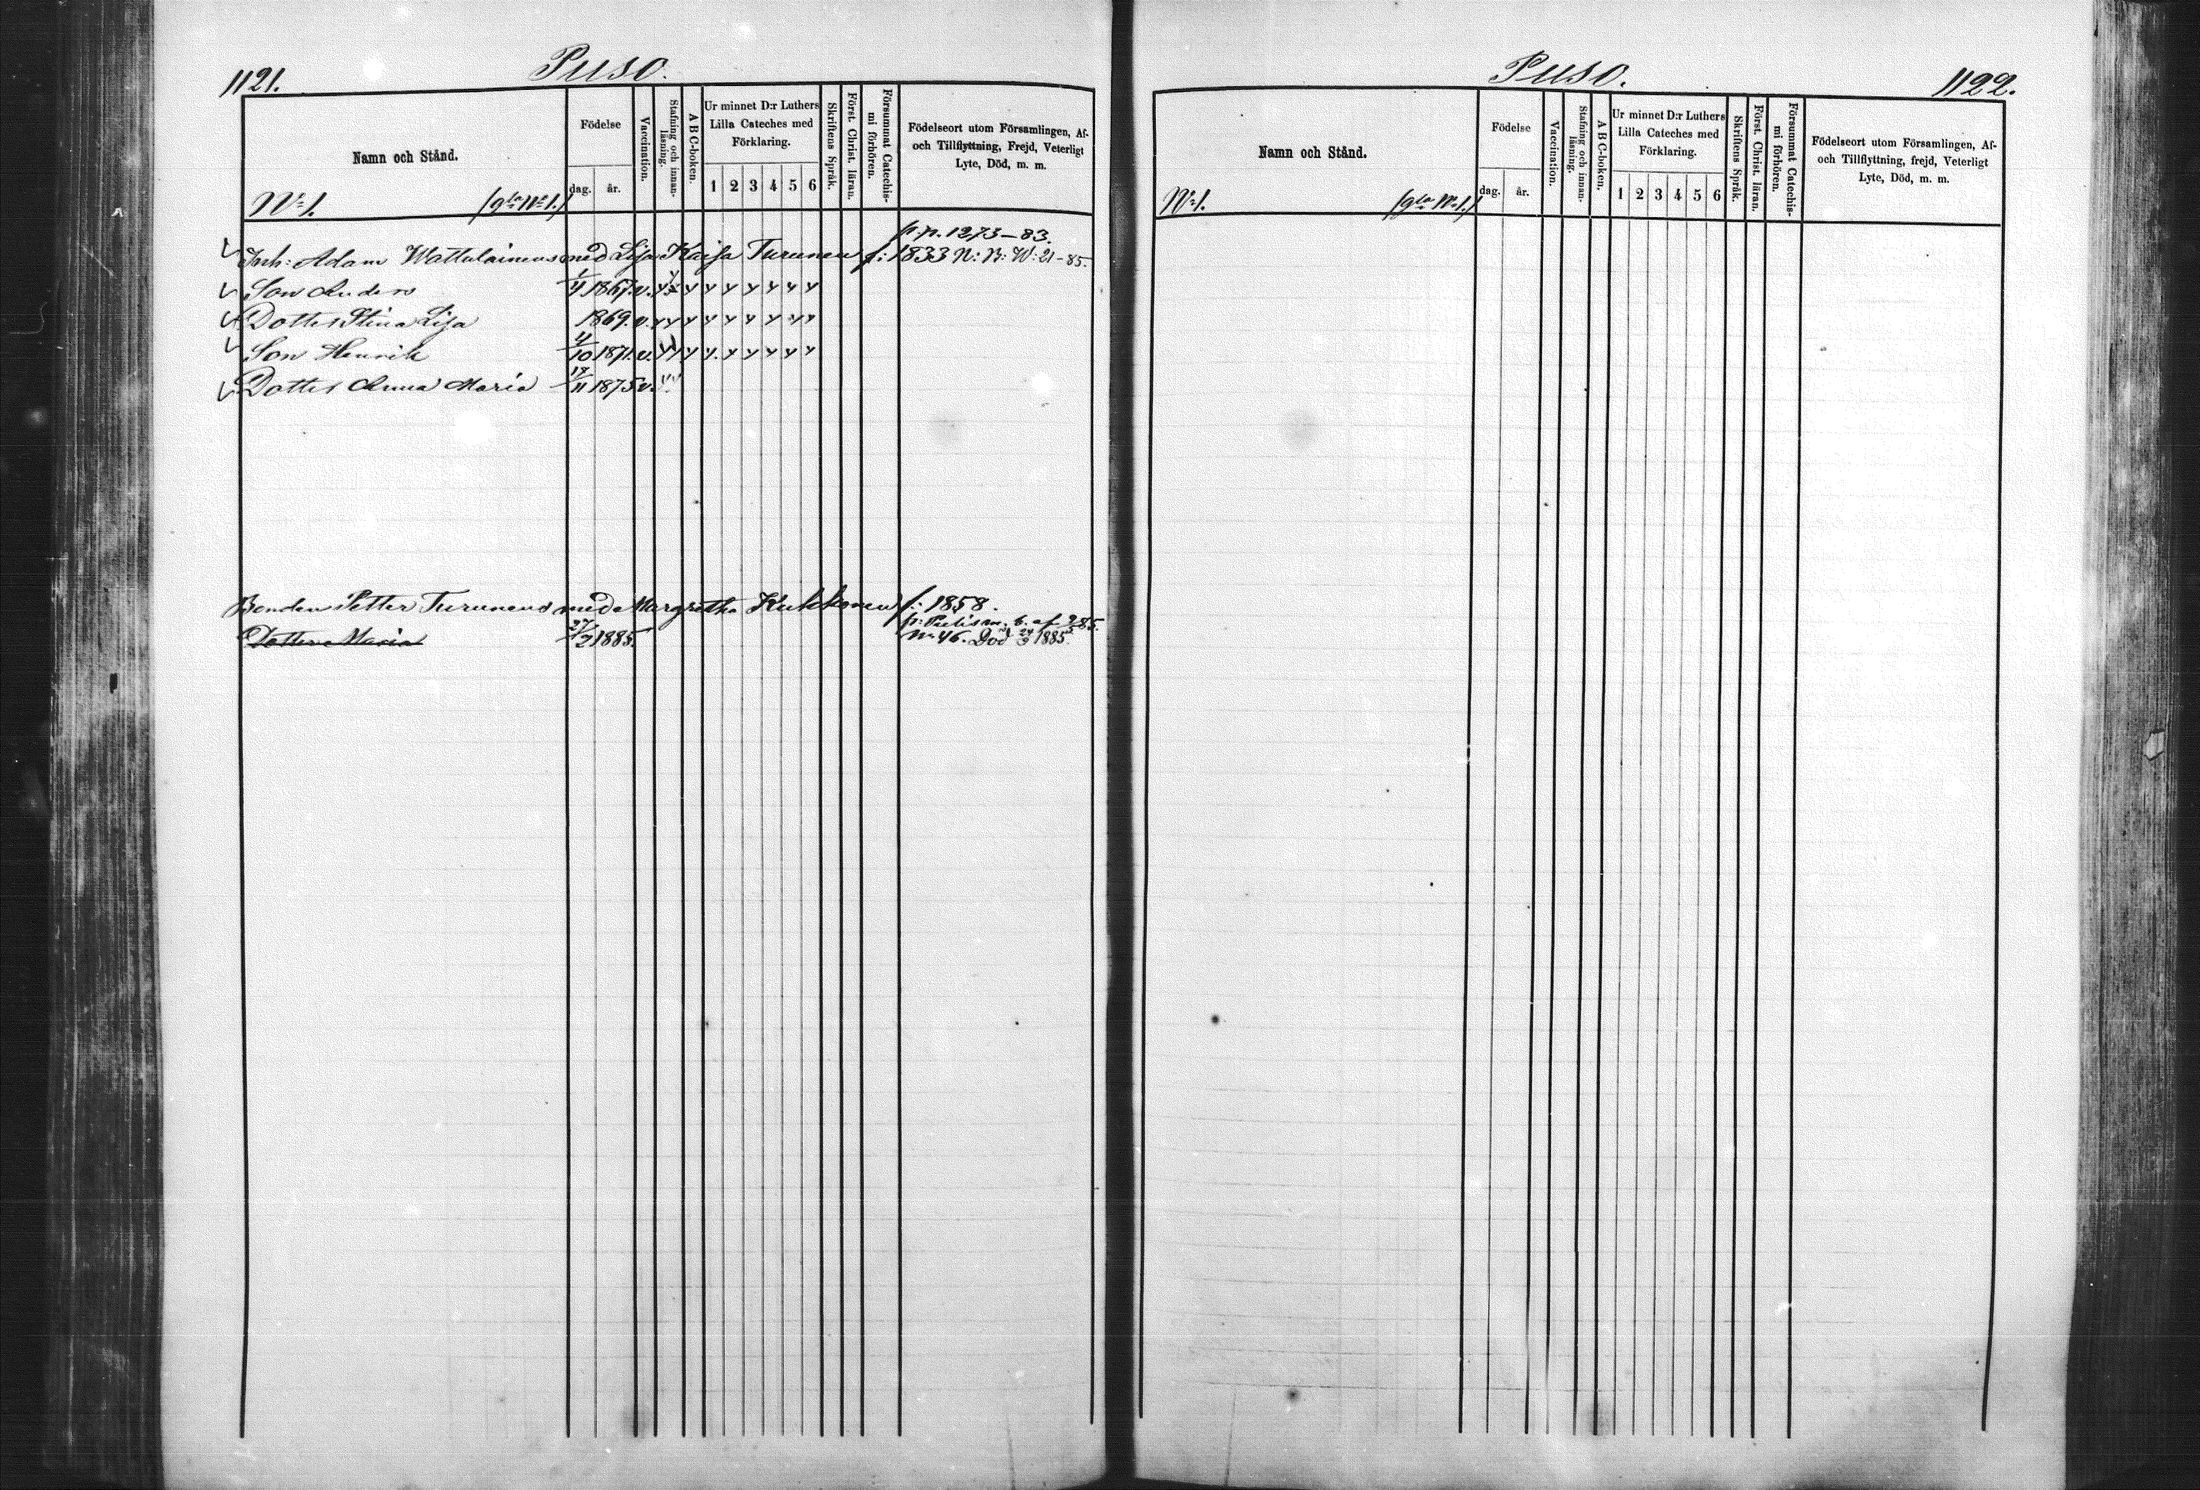 1121.
Puso.
Namn och Stånd.
Födelse
dag. år.
Vaccination.
Stafning och innan-
läsning.
A B C-boken.
Ur minnet D:r Luthers
Lilla Cateches med
Förklaring.
1 2 3 4 5 6
Skriftens Språk.
Först. Christ. läran.
Försummat Catechis-
mi förhören.
Födelseort utom Församlingen, Af-
och Tillflyttning, Frejd, Veterligt
Lyte, Död, m. m.
No 1. (gla No 1.)
p. 1273-83.
Inh: Adam Wattulainens med Lisa Kaisa Turunen f: 1833 N: B: W: 21-85.
Son Anders 1/4 1867. v.
Dotter Stina Lisa 1869. v.
Son Henrik 4/10 1871. v.
Dotter Anna Maria 17/11 1875 v.
Bonden Petter Turunens med Margretha Kukkonen f: 1858.
af 285.
Dotter Maria 27/2 1885. No 46. Död 1885.
Puso.
1122.
Namn och Stånd.
Födelse
dag. år.
Vaccination.
Stafning och innan-
läsning.
A B C-boken.
Ur minnet D:r Luthers
Lilla Cateches med
Förklaring.
1 2 3 4 5 6
Skriftens Språk.
Först. Christ. läran.
Försummat Catechis-
mi förhören.
Födelseort utom Församlingen, Af-
och Tillflyttning, frejd, Veterligt
Lyte, Död, m. m.
No 1. (gla No 1.)